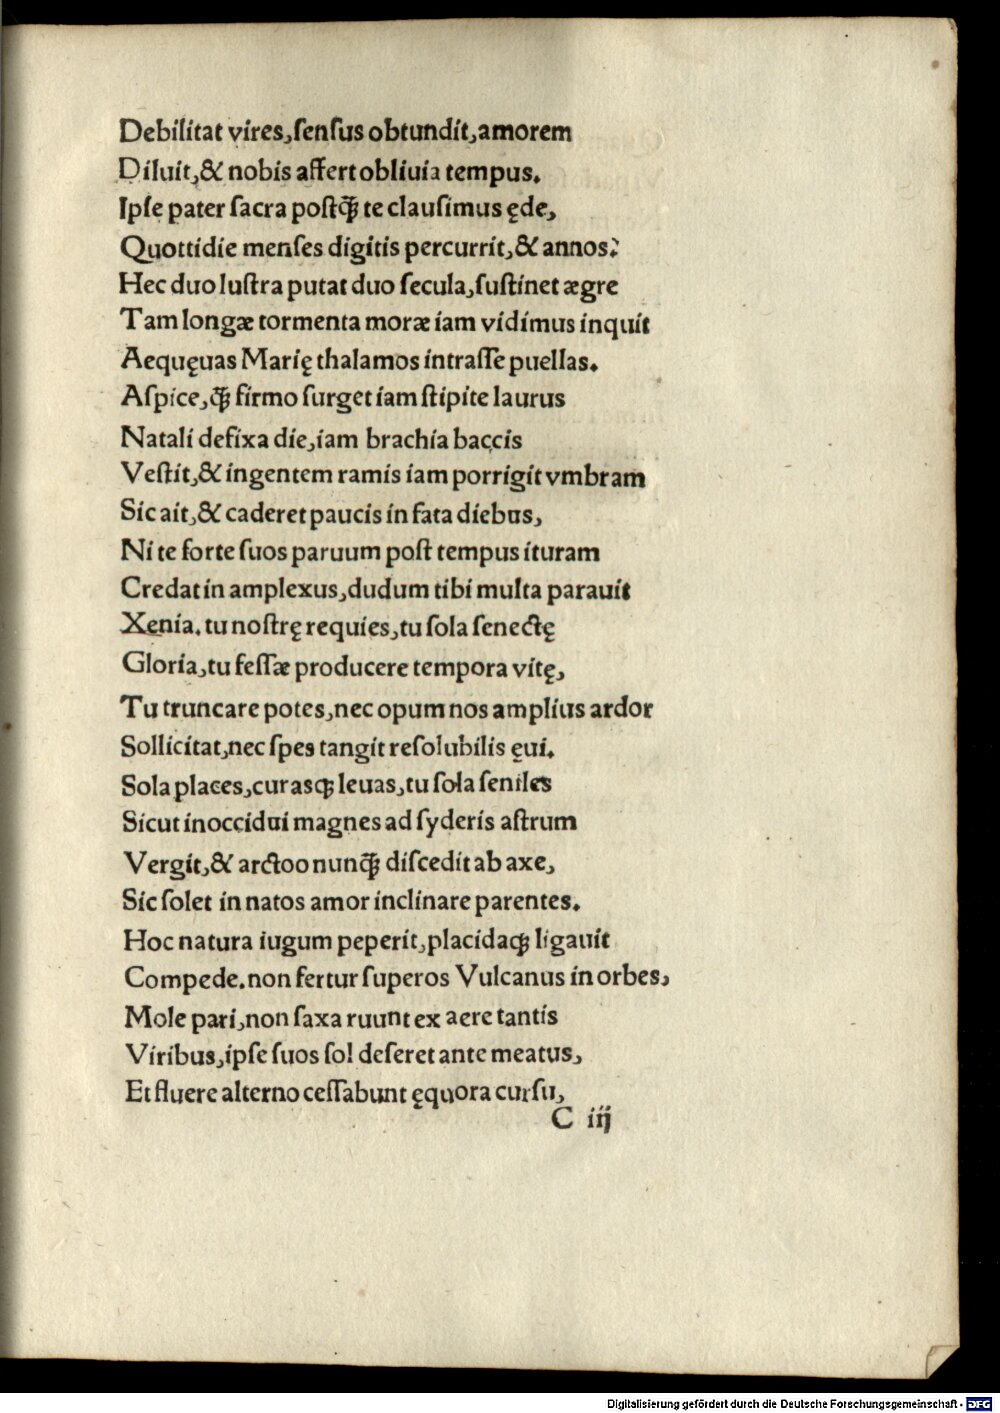 Debilitat vires,ſenſus obtundit,amorem
Diluit,& nobis affert obliuia tempus.
Ipſe pater ſacra poſtꝙ̃ te clauſimus ęde,
Quottidie menſes digitis percurrit,& annos:
Hec duo luſtra putat duo ſecula,ſuſtinet ægre
Tam longæ tormenta moræ iam vidimus inquit
Aequęuas Marię thalamos intraſſe puellas.
Aſpice,ꝙ̃ firmo ſurget iam ſtipite laurus
Natali defixa die,iam brachia baccis
Veſtit,& ingentem ramis iam porrigit vmbram
Sic ait,& caderet paucis in fata diebus,
Ni te forte ſuos paruum poſt tempus ituram
Credat in amplexus,dudum tibi multa parauit
Xenia.tu noſtrę requies,tu ſola ſenectę
Gloria,tu feſſæ producere tempora vitę,
Tu truncare potes,nec opum nos amplius ardor
Sollicitat,nec ſpes tangit reſolubilis ęui.
Sola places,curasqꝫ leuas,tu ſola ſeniles
Sicut inoccidui magnes ad ſyderis aſtrum
Vergit,& arctoo nunꝙ̃ diſcedit ab axe,
Sic ſolet in natos amor inclinare parentes.
Hoc natura iugum peperit,placidaqꝫ ligauit
Compede.non fertur ſuperos Vulcanus in orbes,
Mole pari,non ſaxa ruunt ex aere tantis
Viribus,ipſe ſuos ſol deſeret ante meatus,
Et fluere alterno ceſſabunt ęquora curſu,
C iij
Digitalisierung gefördert durch die Deutsche Forschungsgemeinschaft - DFG